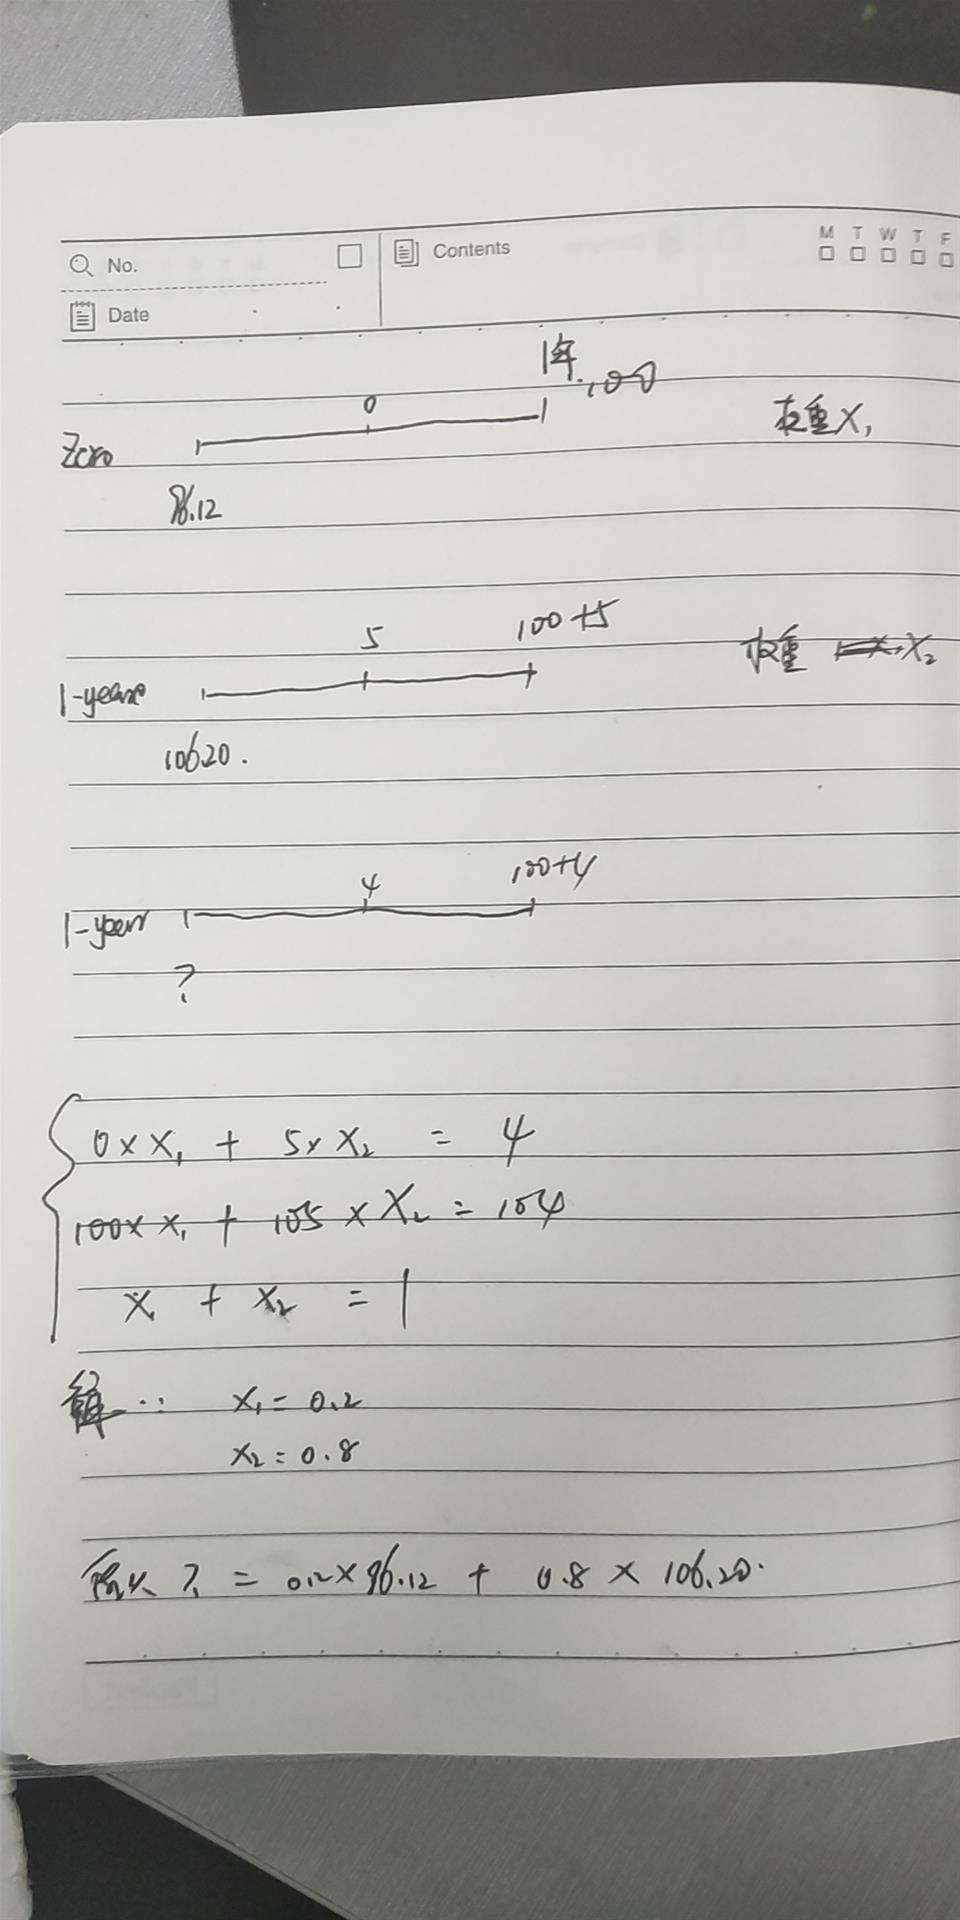 No.
Contents
M T W T F
Date
1年
0 100
Zero 权重 X₁
96.12
5 100+5
1-year 权重 X₂
106.20.
4 100+4
1-year
?
0×X₁ + 5×X₂ = 4
100×X₁ + 105×X₂ = 104
X₁ + X₂ = 1
解 X₁=0.2
X₂=0.8
所以 ? = 0.2×96.12 + 0.8×106.20.